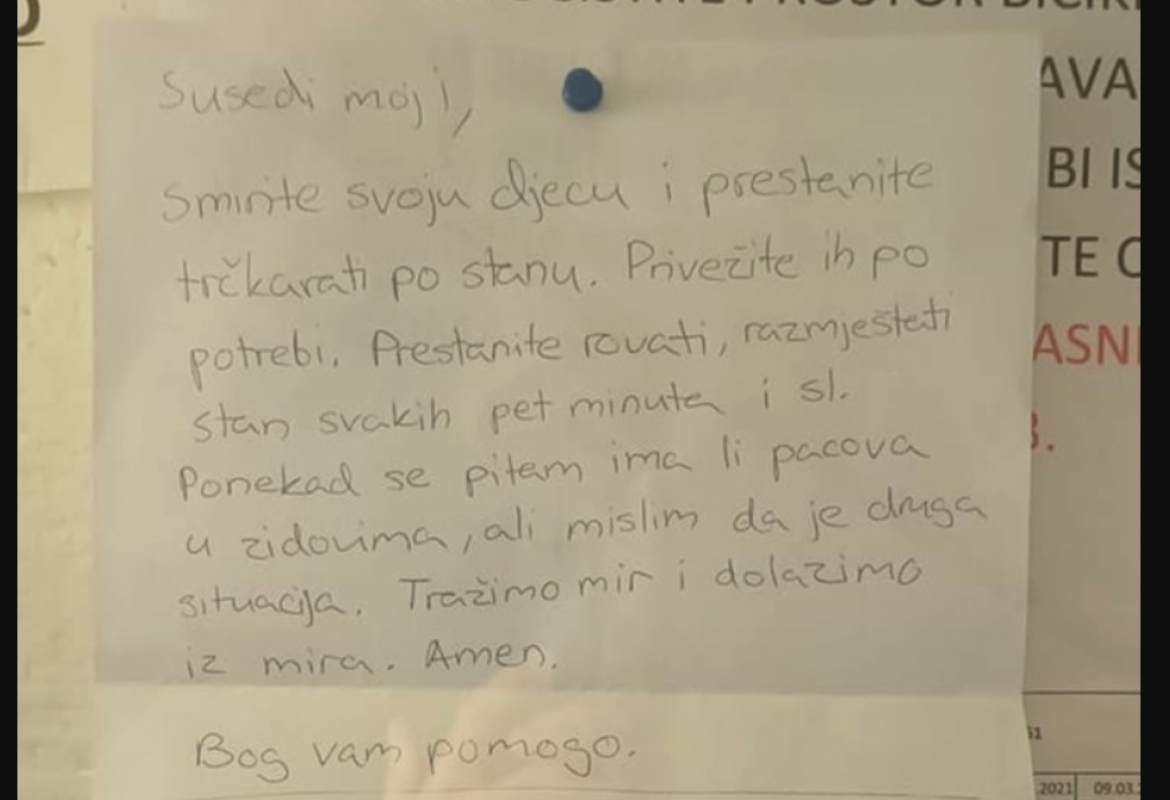 AVA
BI IS
TE
ASNI
Susedi moji,
Smirite svoju djecu i prestanite
trčkarati po stanu. Privežite ih po
potrebi. Prestanite rovati, razmještati
stan svakih pet minuta i sl.
Ponekad se pitam ima li pacova
u zidovima, ali mislim da je druga
situacija. Tražimo mir i dolazimo
iz mira. Amen.
Bog vam pomogo.
51
2021 09.03.